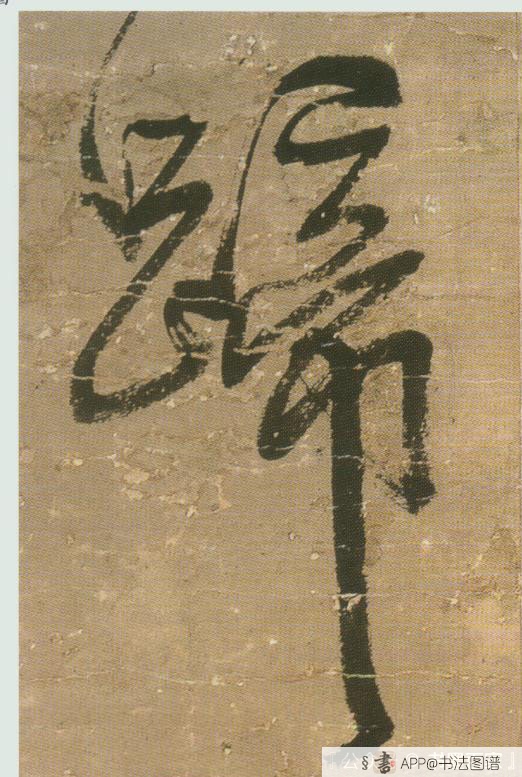 歸
APP@书法图谱